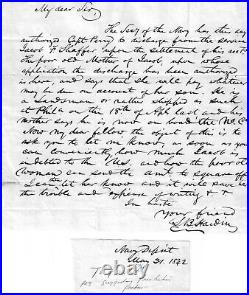 My dear Sir,
The Secy of the Navy has this day
authorized Capt Perry to discharge from the service
Jacob F Shaffer upon the settlement of his acct.
The poor old Mother of Jacob, upon whose
application the discharge has been authorized
is here and says that she will pay whatever
may be due on account of her son. He is a
Landsman, or rather shipped as such
at Phila on the 18th of Apl last and his
Mother says he is now on board the N.C.
Now my dear fellow the object of this is to
ask you to let me know as soon as you
can conveniently how much Jacob is
indebted to the US, and how the poor old
woman can send the amt to square off
let her know and it will save her
the trouble and expense of waiting
In haste
Your friend
Hardin
Navy Depmt
May 31. 1842